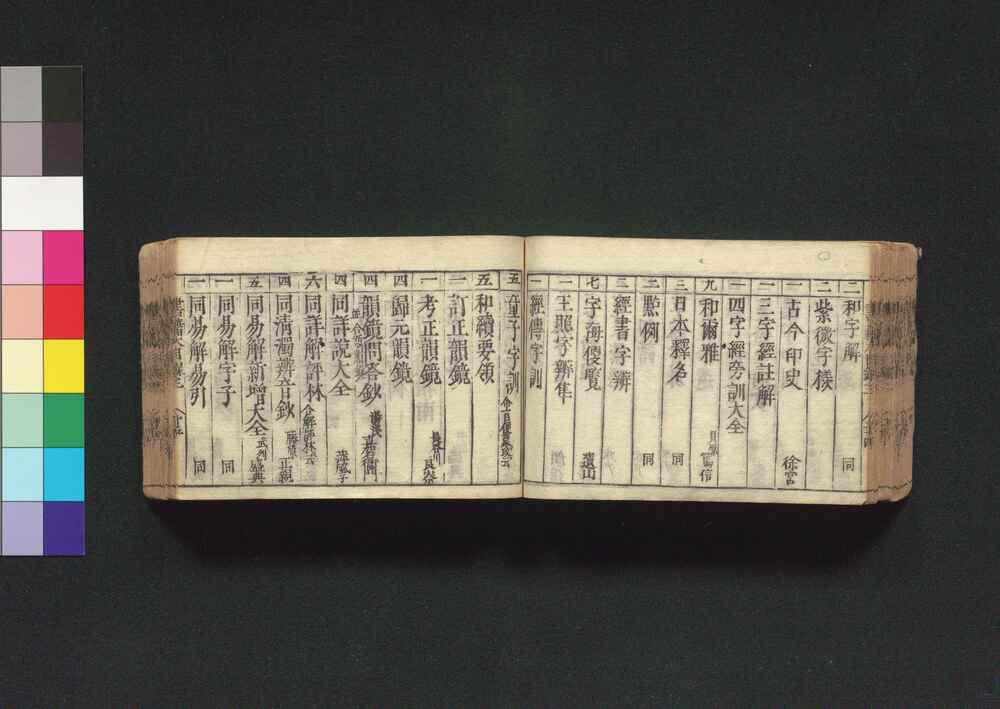 二 和字解 同
二 紫微字様
一 古今印史 徐官
一 三字經註解
一 四字經旁訓大全
九 和爾雅 貝原 篤信
三 日本釋名 同
二 點例 同
三 經書字辨
七 字海便覽 遜山
一 王熙字辨隼
一 經傳字訓
五 童子字訓
五 和續要領
二 訂正韻鏡
一 考正韻鏡
四 歸元韻鏡
四 韻鏡問答鈔
四 同詳說大全
六 同詳解評林
四 同清濁辨音鈔 藤原 正親
五 同易解新增大全 盛典
一 同易解字子 同
一 同易解易引 同